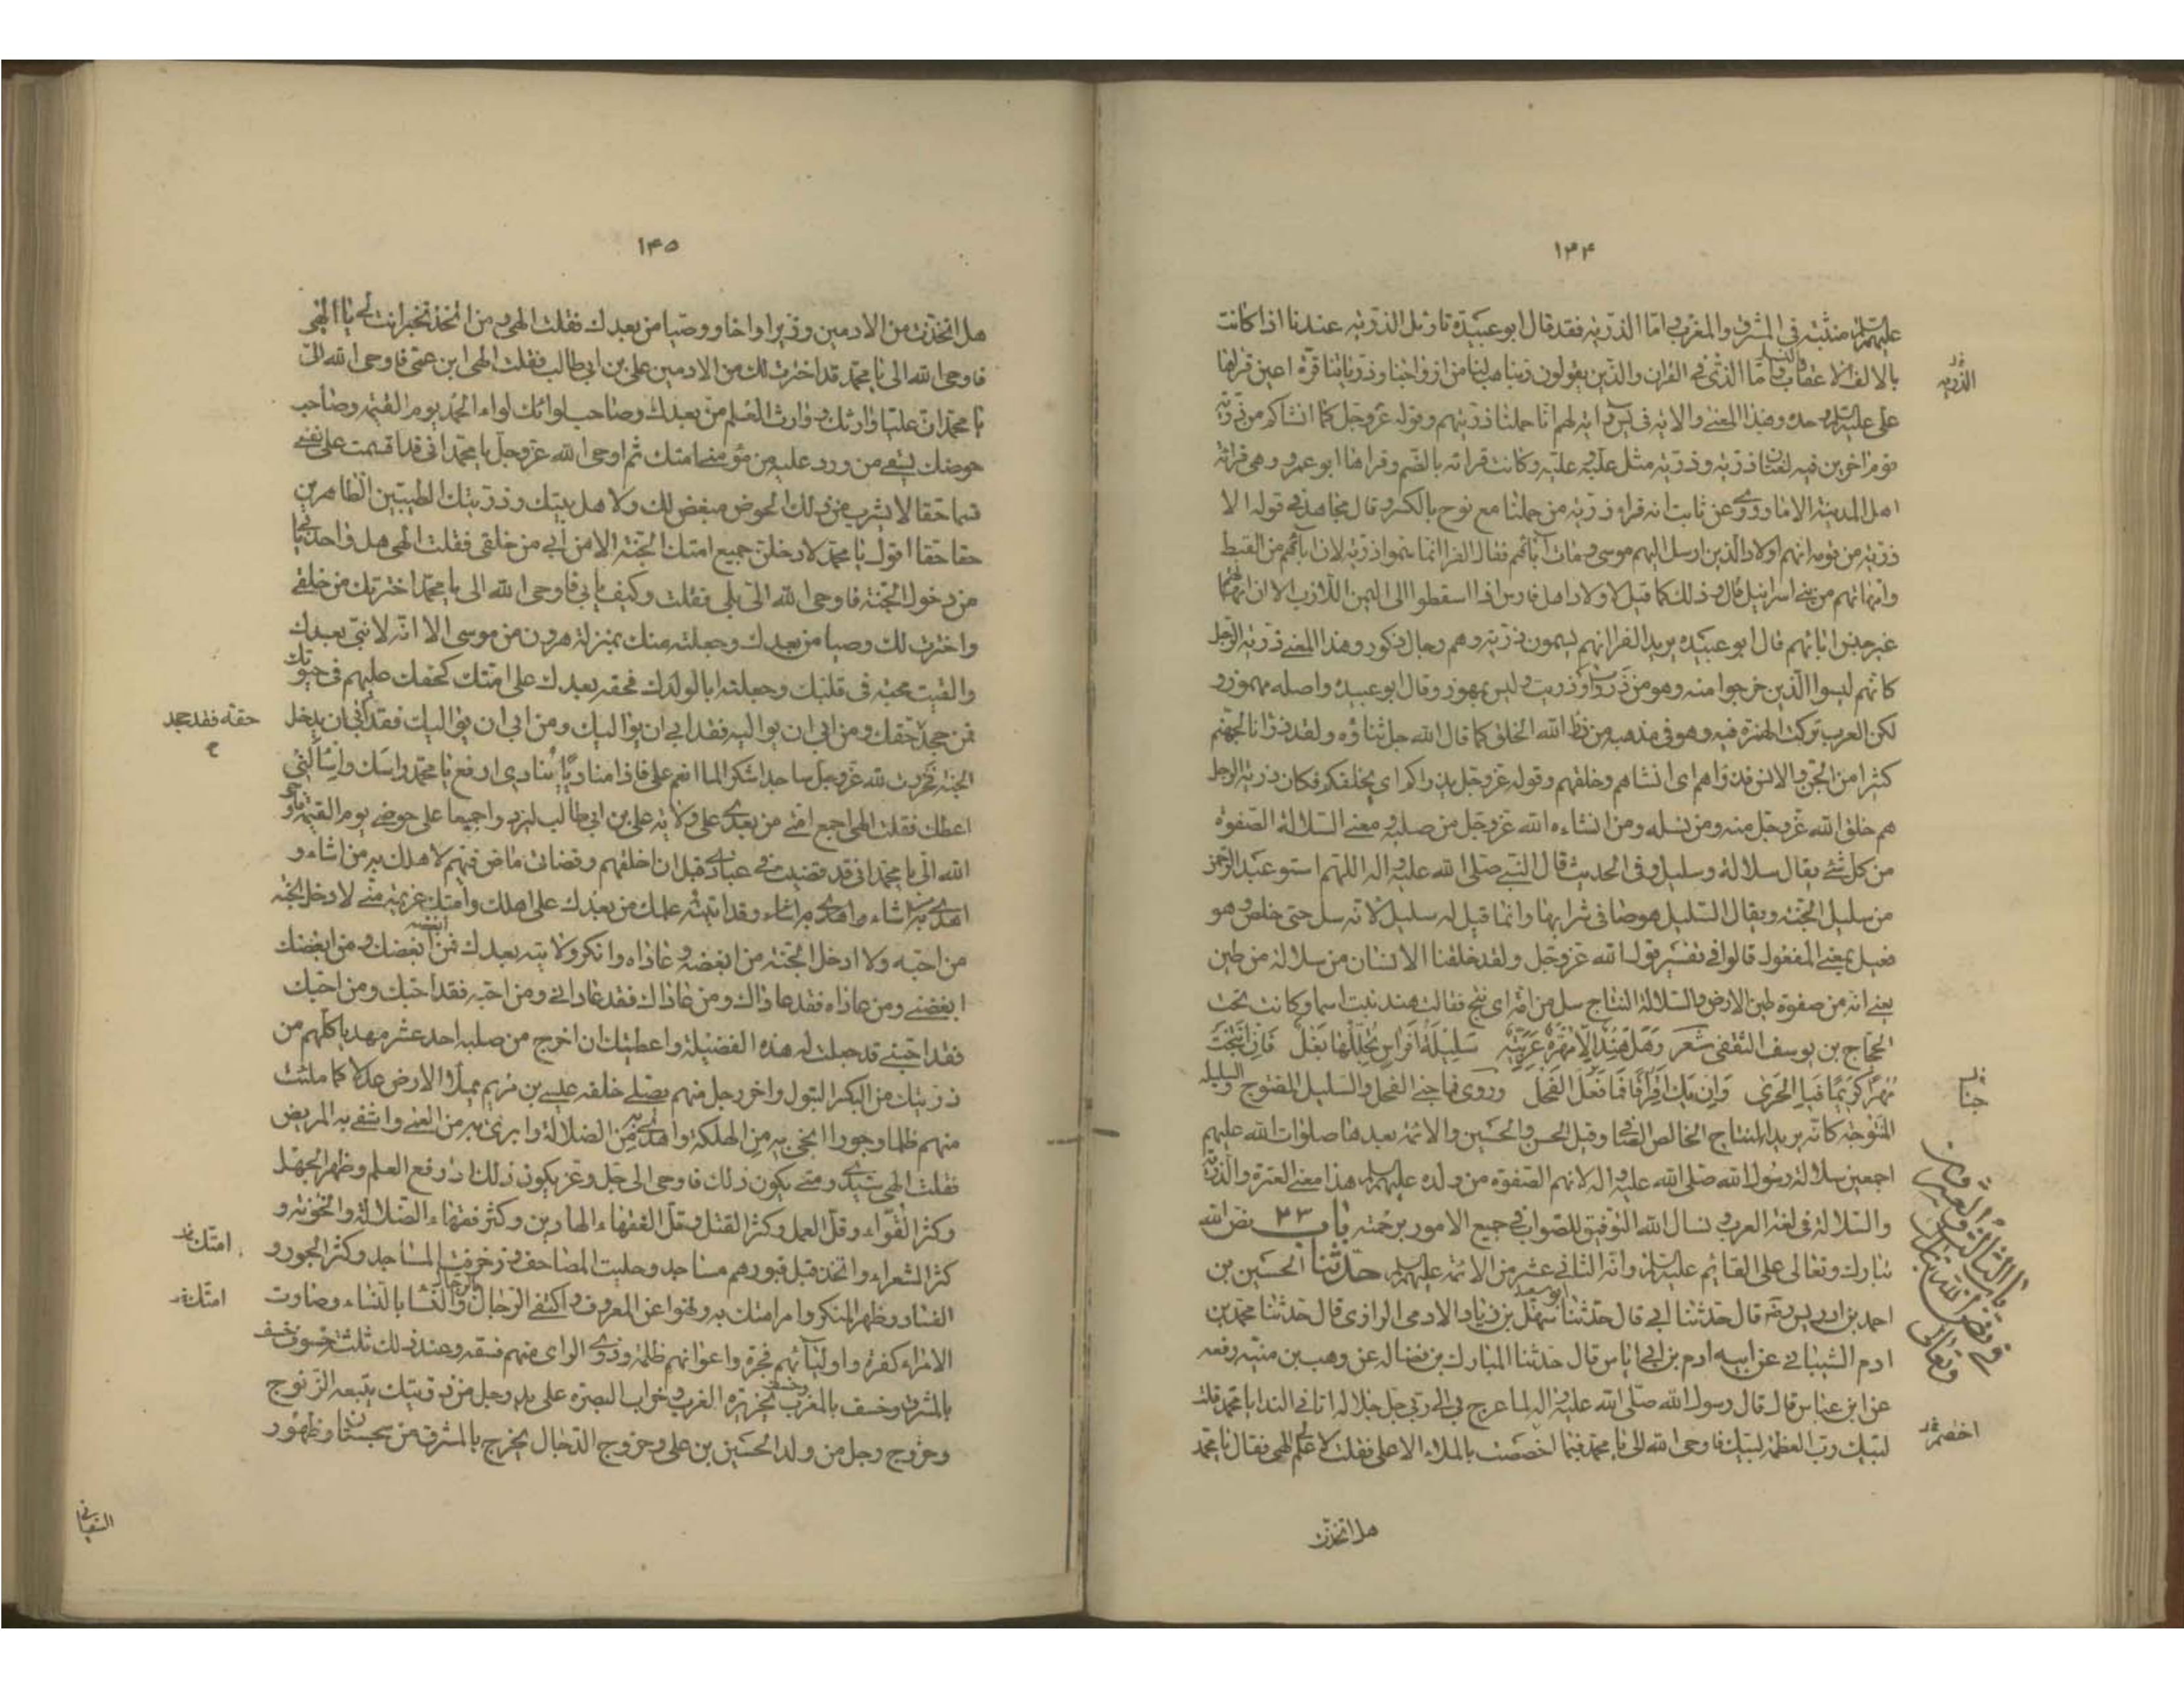 ١٣۴
عليهم السلام منبثة فی المشرق والمغرب واما الذرّیه فقد قال ابو عبیدة تاویل الذرّیه عندنا اذا کانت
بالالف الاعقاب والنسل واما الذی فی القران والذین یقولون ربنا هب لنا من ازواجنا وذریاتنا قرّة اعین قراها
علی علیه السلم وحده وبهذا المعنی والایة فی یس وایة لهم انا حملنا ذرّیتهم وقوله عزوجل کما انشاکم من ذرّیة
قوم اخرین فیه لغتان ذرّیه وذرّیه مثل علّیه وعلّیه وکانت قرائته بالضم وقراها ابو عمرو وهی قرائة
اهل المدینة الا ما روی عن ثابت انه قراء ذرّیة من حملنا مع نوح بالکسر وقال مجاهد فی قوله الا
ذرّیة من قومه انهم اولاد الذین ارسل الیهم موسی ومات ابائهم فقال الفرا انما سموا ذرّیة لان ابائهم من القبط
وامهاتهم من بنی اسرائیل قال وذلک کما قیل لاولاد اهل فارس الذین سقطوا الی الیمن الابناء لان امهاتهم
غیر جنس ابائهم قال ابو عبیده یرید الفرا انهم یسمون ذرّیة وهم رجال ذکور وهذا المعنی ذرّیة الرجل
کانهم لیسوا الذین خرجوا منه وهو من ذروت او ذریت ولیس بمهوز وقال ابو عبیدة واصله مهموز و
لکن العرب ترکت الهمزة فیه وهو فی مذهبه من ذرأ الله الخلق کما قال الله جل ثناؤه ولقد ذرانا لجهنّم
کثیرا من الجنّ والانس فذراهم ای انشاهم وخلقهم وقوله عزوجل یذراکم ای یخلقکم فکان ذرّیة الرجل
هم خلق الله عزوجل منه ومن نسله ومن انشاءه الله عزوجل من صلبه ومعنی السلالة الصفوة
من کل شیء یقال سلالة وسلیل وفی الحدیث قال النبی صلی الله علیه واله اللهم اسق عبد الرحمن
من سلیل الجنّة ویقال السلیل هو صافی شرابها وانما قیل له سلیل لانّه سلّ حتی خلص وهو
فعیل بمعنی المفعول قالوا فی تفسیر قول الله عزوجل ولقد خلقنا الانسان من سلالة من طین
یعنی انه من صفوة طین الارض والسلالة النتاج سل من امّه ای نتج فقالت هند بنت اسما وکانت تحت
الحجّاج بن یوسف الثقفی شعر وَهَل هِندُ اِلّا مُهْرَةٌ عَرَبِیّةٌ سَلِیلَةُ اَفراسٍ تَجَلَّلَهَا بَغْلُ فَاِن اَنْتَجَتْ
مُهْرًا کَرِیمًا فَبِالحَرَی وَاِن یَکُ اِقْرَافًا فَمَا فَعَلَ الفَحْلُ وروی فما جنی الفحل والسلیل المنتوج والسلیلة
المنتوجة کانّه یرید النتاج الخالص الصافی وقیل للحسن والحسین والائمة بعدهما صلوات الله علیهم
اجمعین سلالة رسول الله صلی الله علیه واله لانهم الصفوة من ولده علیهم السلم هذا معنی العترة والذرّیة
والسلالة فی لغة العرب ونسال الله التوفیق للصواب فی جمیع الامور برحمته باب ٢٣ نصّ الله
تبارک وتعالی علی القائم علیه السلم وانّه الثانی عشر من الائمة علیهم السلم حدّثنا الحسین بن
احمد بن ادریس رضه قال حدّثنا ابی قال حدّثنا ابو سعید سهل بن زیاد الادمی الرازی قال حدّثنا محمد بن
ادم الشیبانی عن ابیه ادم بن ابی ایاس قال حدثنا المبارک بن فضالة عن وهب بن منبّه رفعه
عن ابن عباس قال قال رسول الله صلّی الله علیه واله لما عرج بی الی ربّی جل جلاله اتانی الندا یا محمد قلت
لبیّک ربّ العظمة لبیّک فاوحی الله الی یا محمد فیما اختصمت بالملاء الاعلی فقلت لا علم لی الهی فقال یا محمّد
هل اتخذت
الذریه
جنا
باب الثالث والعشرون
فی نص الله تبارک
وتعالی
اختصم
١۴٥
هل اتخذت من الادمین وزیرا واخا ووصیا من بعدک فقلت الهی ومن اتخذ تخیّر انت لی یا الهی
فاوحی الله الی یا محمّد قد اخترت لک من الادمین علی بن ابی طالب فقلت الهی ابن عمّی فاوحی الله الیّ
یا محمّد ان علیّا وارثک ووارث العلم من بعدک وصاحب لوائک لواء الحمد یوم القیمة وصاحب
حوضک یسقی من ورد علیه من مؤمنی امتک ثم اوحی الله عزوجل یا محمّد انی قد اقسمت علی نفسی
قسما حقا لا یشرب من ذلک الحوض مبغض لک ولاهل بیتک وذریتک الطیبین الطاهرین
حقا حقا اقول یا محمّد لادخلن جمیع امتک الجنّة الا من ابی من خلقی فقلت الهی هل واحد یابی
من دخول الجنّة فاوحی الله الیّ بلی فقلت وکیف یابی فاوحی الله الی یا محمّد اخترتک من خلقی
واخترت لک وصیا من بعدک وجعلته منک بمنزلة هرون من موسی الا انّه لا نبیّ بعدک
والقیت محبّته فی قلبک وجعلته ابا لولدک فحقه بعدک علی امتک کحقک علیهم فی حیوتک
فمن جحد حقّک ومن ابی ان یوالیه فقد ابی ان یوالیک ومن ابی ان یوالیک فقد ابی ان یدخل
الجنة فخررت لله عزوجل ساجدا شکرا لما انعم علی فاذا منادیًا ینادی ارفع یا محمّد راسک واسألنی
اعطک فقلت الهی اجمع امتی من بعدی علی ولایة علی بن ابی طالب لیردوا جمیعا علی حوضی یوم القیمة فاوحی
الله الیّ یا محمّد انی قد قضیت فی عبادی قبل ان اخلقهم وقضائی ماض فیهم لاهلک به من اشاء و
اهدی به من اشاء وقد اتیته علمک من بعدک علی اهلک وامتک عزیمة منّی لادخل الجنّة
من احبّه ولا ادخل الجنّة من ابغضه وعاداه وانکر ولایته بعدک فمن ابغضه ابغضک ومن ابغضک
ابغضنی ومن عاداه فقد عاداک ومن عاداک فقد عادانی ومن احبّه فقد احبّک ومن احبّک
فقد احبّنی قد جعلت له هذه الفضیلة واعطیتک ان اخرج من صلبه احد عشر مهدیا کلّهم من
ذریتک من البکر البتول واخر رجل منهم یصلی خلفه عیسی بن مریم یملأ الارض عدلا کما ملئت
منهم ظلما وجورا انجی به من الهلکة واهدی به من الضلالة وابرئ به من العمی واشفی به المریض
فقلت الهی سیّدی ومتی یکون ذلک فاوحی الی جل وعز یکون ذلک اذا رفع العلم وظهر الجهل
وکثر القرّاء وقلّ العمل وکثر القتل وقلّ الفقهاء الهادین وکثر فقهاء الضلالة والخونة و
کثر الشعراء واتخذ قبورهم مساجد وحلیت المصاحف وزخرفت المساجد وکثر الجور و
الفساد وظهر المنکر وامر امتک به ونهوا عن المعروف واکتفی الرجال بالرجال والنسا بالنساء وصارت
الامراء کفرة واولیائهم فجرة واعوانهم ظلمة وذوی الرای منهم فسقة وعند ذلک ثلثة خسوف خسف
بالمشرق وخسف بالمغرب وخسف بجزیرة العرب وخراب البصرة علی ید رجل من ذرّیتک یتبعه الزّنوج
وخروج رجل من ولد الحسین بن علی وخروج الدّجال یخرج بالمشرق من سجستان وظهور
السفیانی
حقه فقد جحد
امتک
امتک